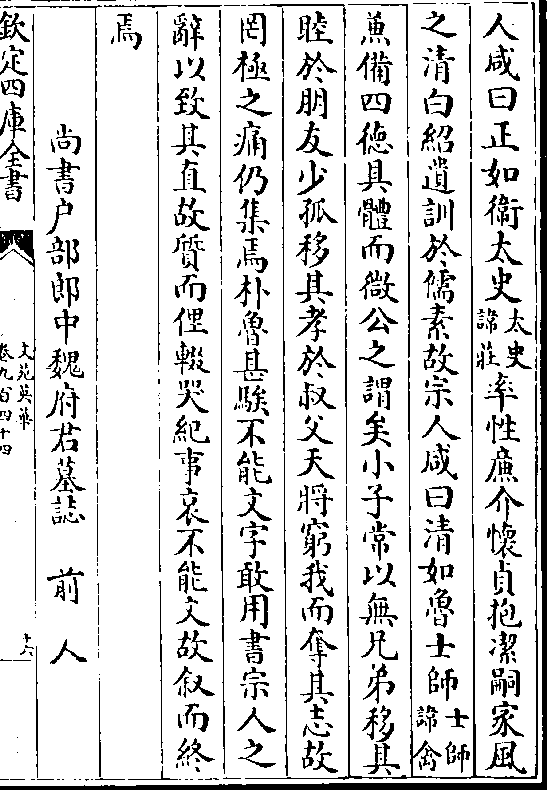 人咸曰正如衛太史太史諱莊率性廉介懷貞抱潔嗣家風
之清白紹遺訓於儒素故宗人咸曰清如魯士師士師諱禽
兼備四德具體而微公之謂矣小子常以無兄弟移其
睦於朋友少孤移其孝於叔父天將窮我而奪其志故
罔極之痛仍集焉朴魯甚騃不能文字敢用書宗人之
辭以致其直故質而俚輟哭紀事哀不能文故叙而終
焉
尚書户部郎中魏府君墓誌 前人
欽定四庫全書
文苑英華
卷九百四十四
十六